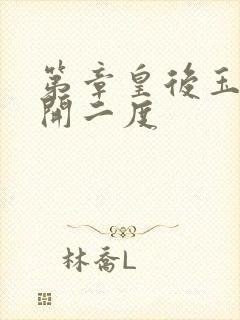 第章皇後玉
開二度
林喬L